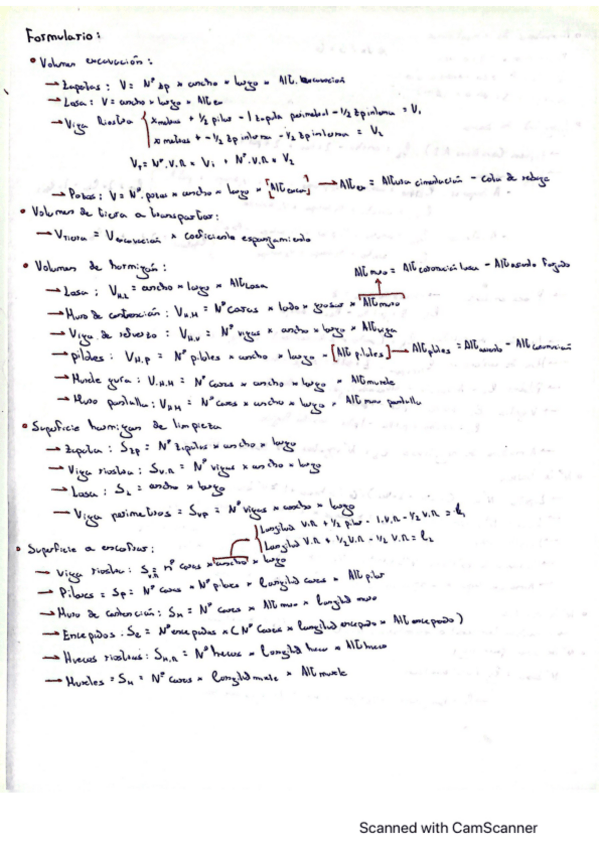 Formulario:
• Volumen excavación:
→ Zapatas: V = Nº zp x ancho x largo x Alt. excavación
→ Losa: V = ancho x largo x Alt ex
→ Viga Riostra { x metros + 1/2 pilar - 1 zapata perimetral - 1/2 zp interna = V₁
x metros + - 1/2 zp interna - 1/2 zp interna = V₂
V_T = Nº. V.R x V₁ + Nº. V.R x V₂
→ Pozos: V = Nº. pozos x ancho x largo x [Alt excav] → Alt ex = Altura cimentación - cota de rebaje
• Volumen de tierra a transportar:
→ V tierra = V excavación x coeficiente esponjamiento
• Volumen de hormigón:
Alt muro = Alt coronación losa - Alt canto forjado
→ Losa: V_H.L = ancho x largo x Alt Losa
→ Muro de contención: V_H.M = Nº caras x lado x grosor x Alt muro
→ Viga de refuerzo: V_H.V = Nº vigas x ancho x largo x Alt viga
→ pilares: V_H.P = Nº pilares x ancho x largo x [Alt pilares] → Alt pilares = Alt - Alt coronación
→ Murete guía: V.H.M = Nº caras x ancho x largo x Alt murete
→ Muro pantalla: V_H.M = Nº caras x ancho x largo x Alt muro pantalla
• Superficie hormigón de limpieza
→ Zapata: S_zp = Nº zapatas x ancho x largo
→ Viga riostra: S_V.R = Nº vigas x ancho x largo
→ Losa: S_L = ancho x largo
→ Viga perimetros = S_VP = Nº vigas x ancho x largo
{ Longitud V.R + 1/2 pilar - 1.V.R - 1/2 V.R = l₁
Longitud V.R + 1/2 V.R - 1/2 V.R = l₂
• Superficie a encofrar:
→ Viga riostra: S_V.R = nº caras x ancho x largo
→ Pilares = Sp = Nº caras x Nº pilares x Longitud caras x Alt pilar
→ Muro de contención: S_M = Nº caras x Alt muro x longitud muro
→ Encepados: S_E = Nº encepados x (Nº caras x longitud encepado x Alt encepado)
→ Huecos riostras: S_H.R = Nº huecos x Longitud hueco x Alt hueco
→ Muretes = S_M = Nº caras x Longitud murete x Alt murete
Scanned with CamScanner